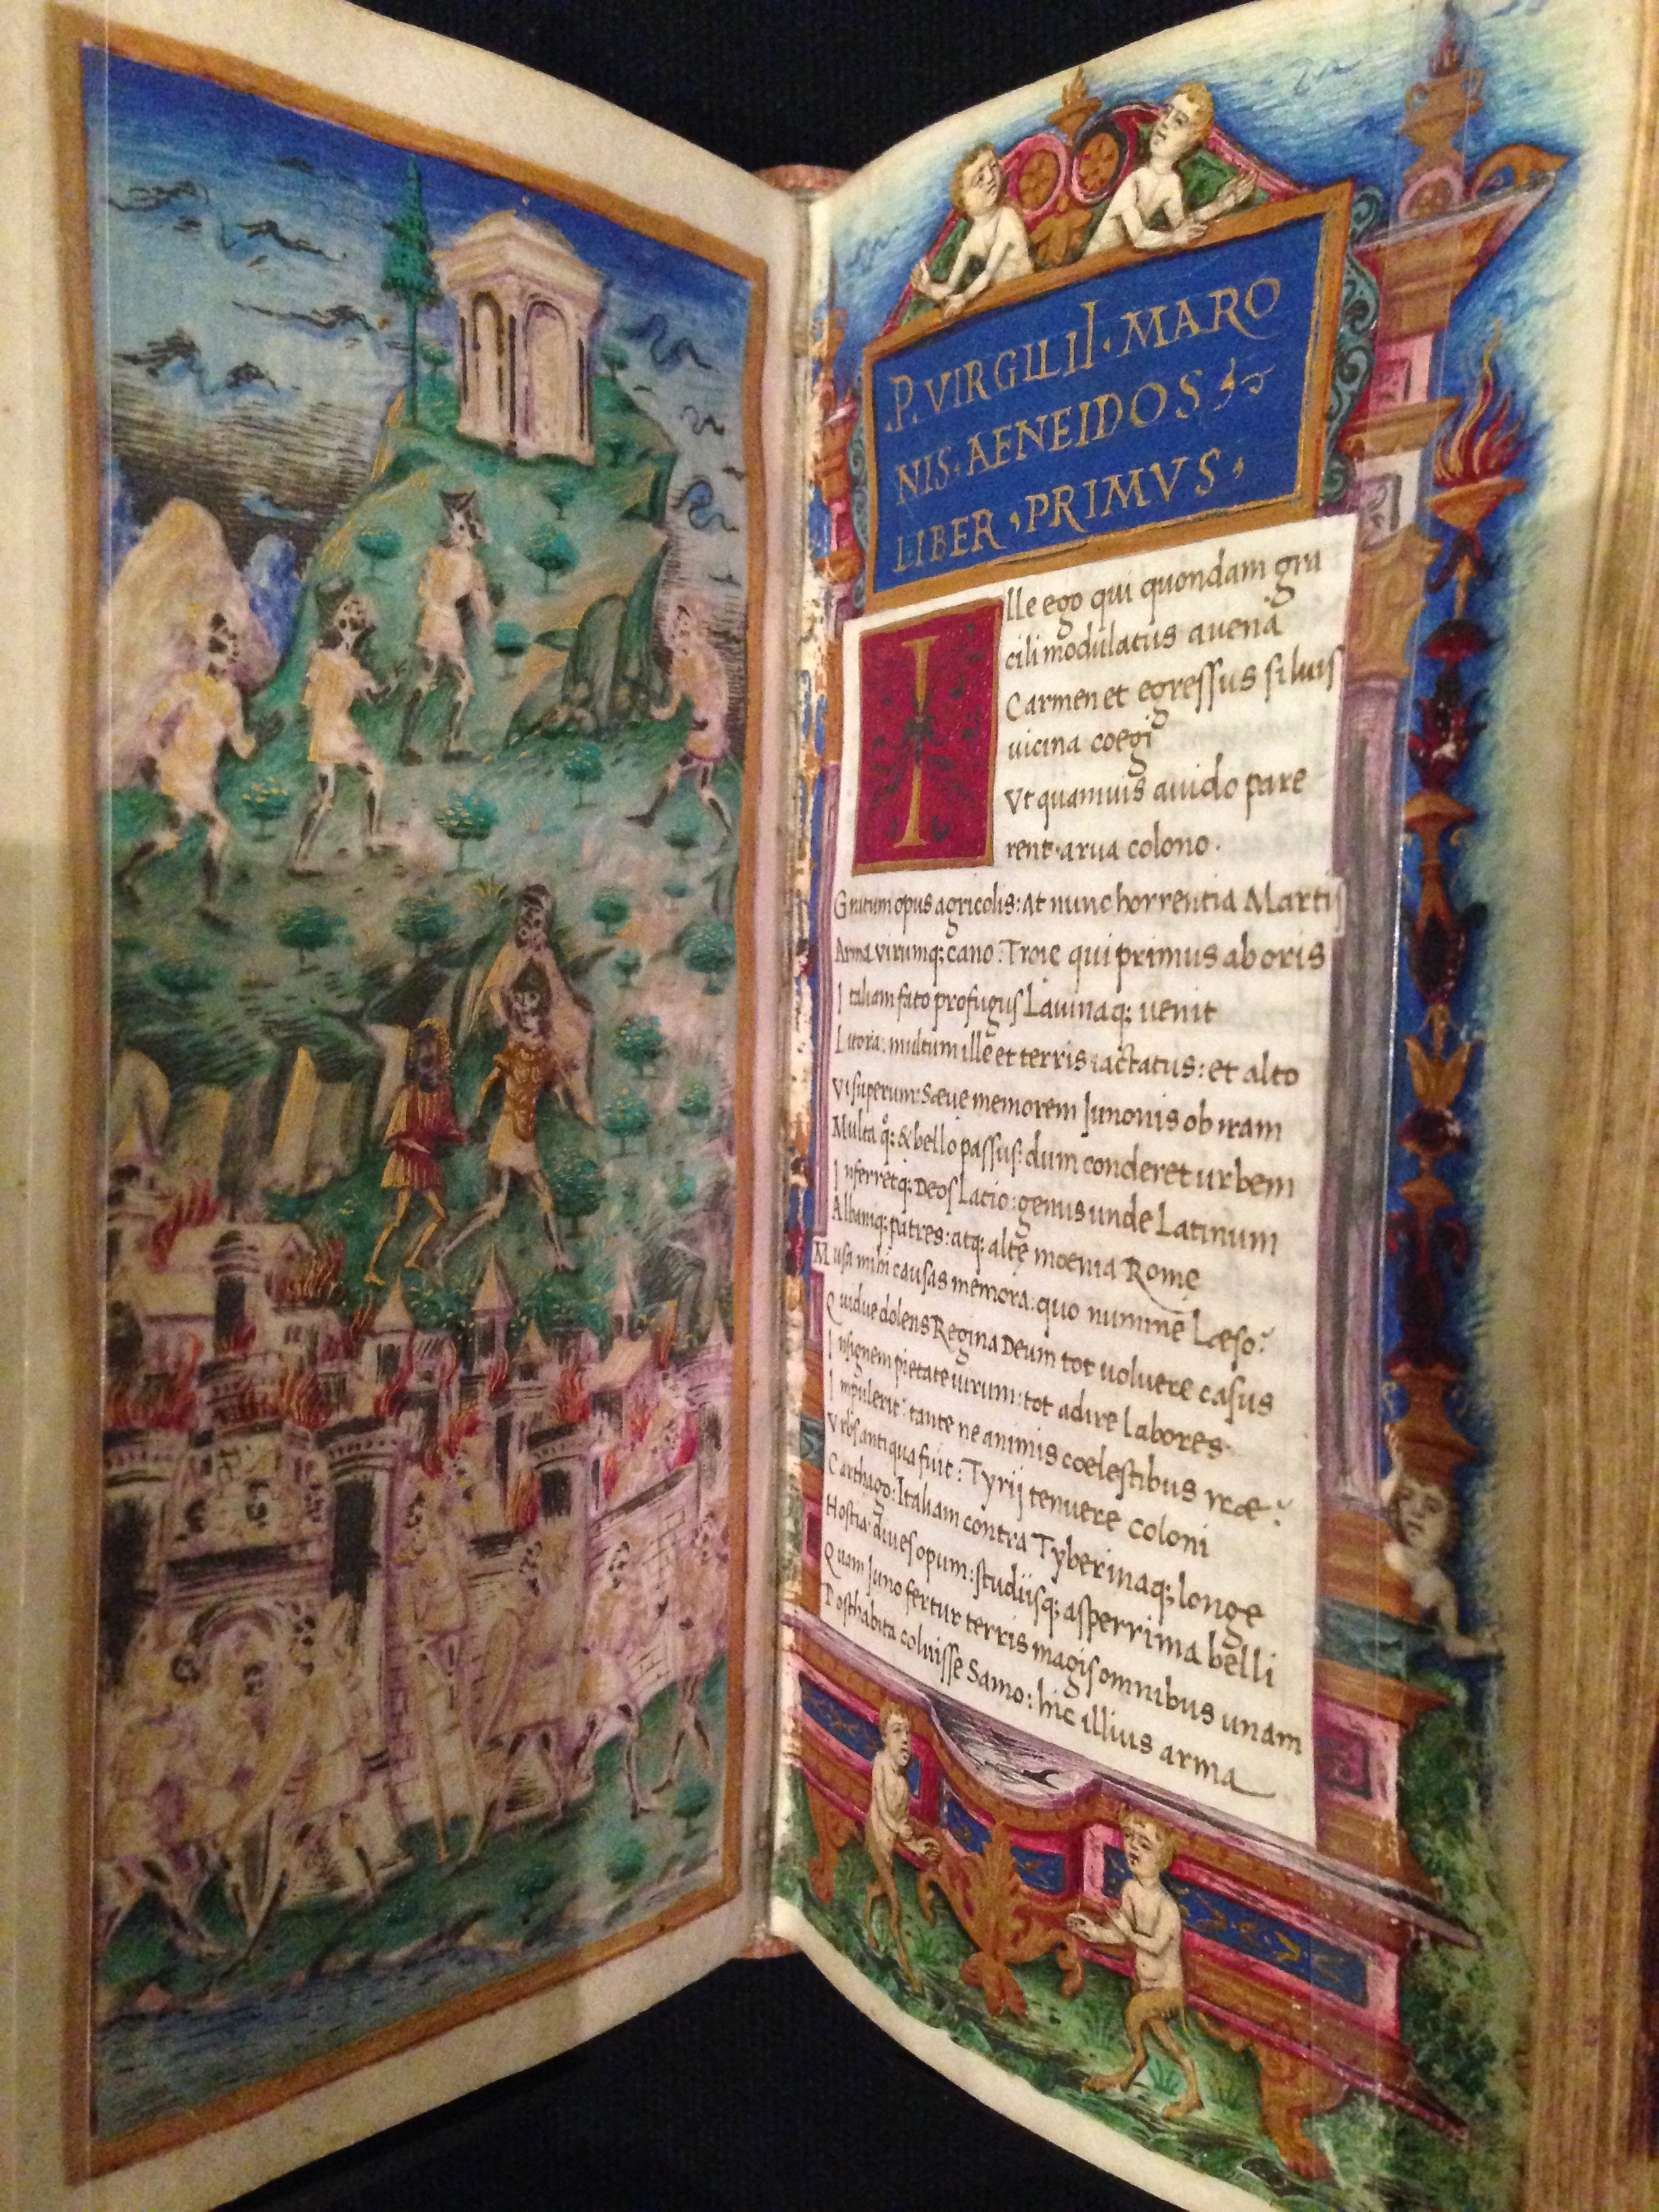 .P. VIRGILII · MARO
NIS · AENEIDOS
LIBER , PRIMVS ,
Ille ego qui quondam gra
cili modulatus auena
Carmen et egressus siluis
uicina coegi
Vt quamuis auido pare
rent arua colono .
Gratum opus agricolis: at nunc horrentia Martis
Arma virumq; cano: Troię qui primus ab oris
Italiam fato profugus Lauinaq; uenit
Litora: multum ille et terris iactatus: et alto
Vi superum: Sæue memorem Junonis ob iram
Multa q̊; & bello passus: dum conderet urbem
Inferretq; Deos Latio: genus unde Latinum
Albaniq; patres: atq; altę moenia Romę
Musa mihi causas memora: quo numine Læso?
Quidue dolens Regina Deum tot voluere casus
Insignem pietate uirum: tot adire labores.
Impulerit: tante ne animis coelestibus iræ?
Vrbs antiqua fuit: Tyrij tenuere coloni
Carthago: Italiam contra Tyberinaq; longe
Hostia: diues opum: studiisq; asperrima belli
Quam Juno fertur terris magis omnibus unam
Posthabita coluisse Samo: hic illius arma